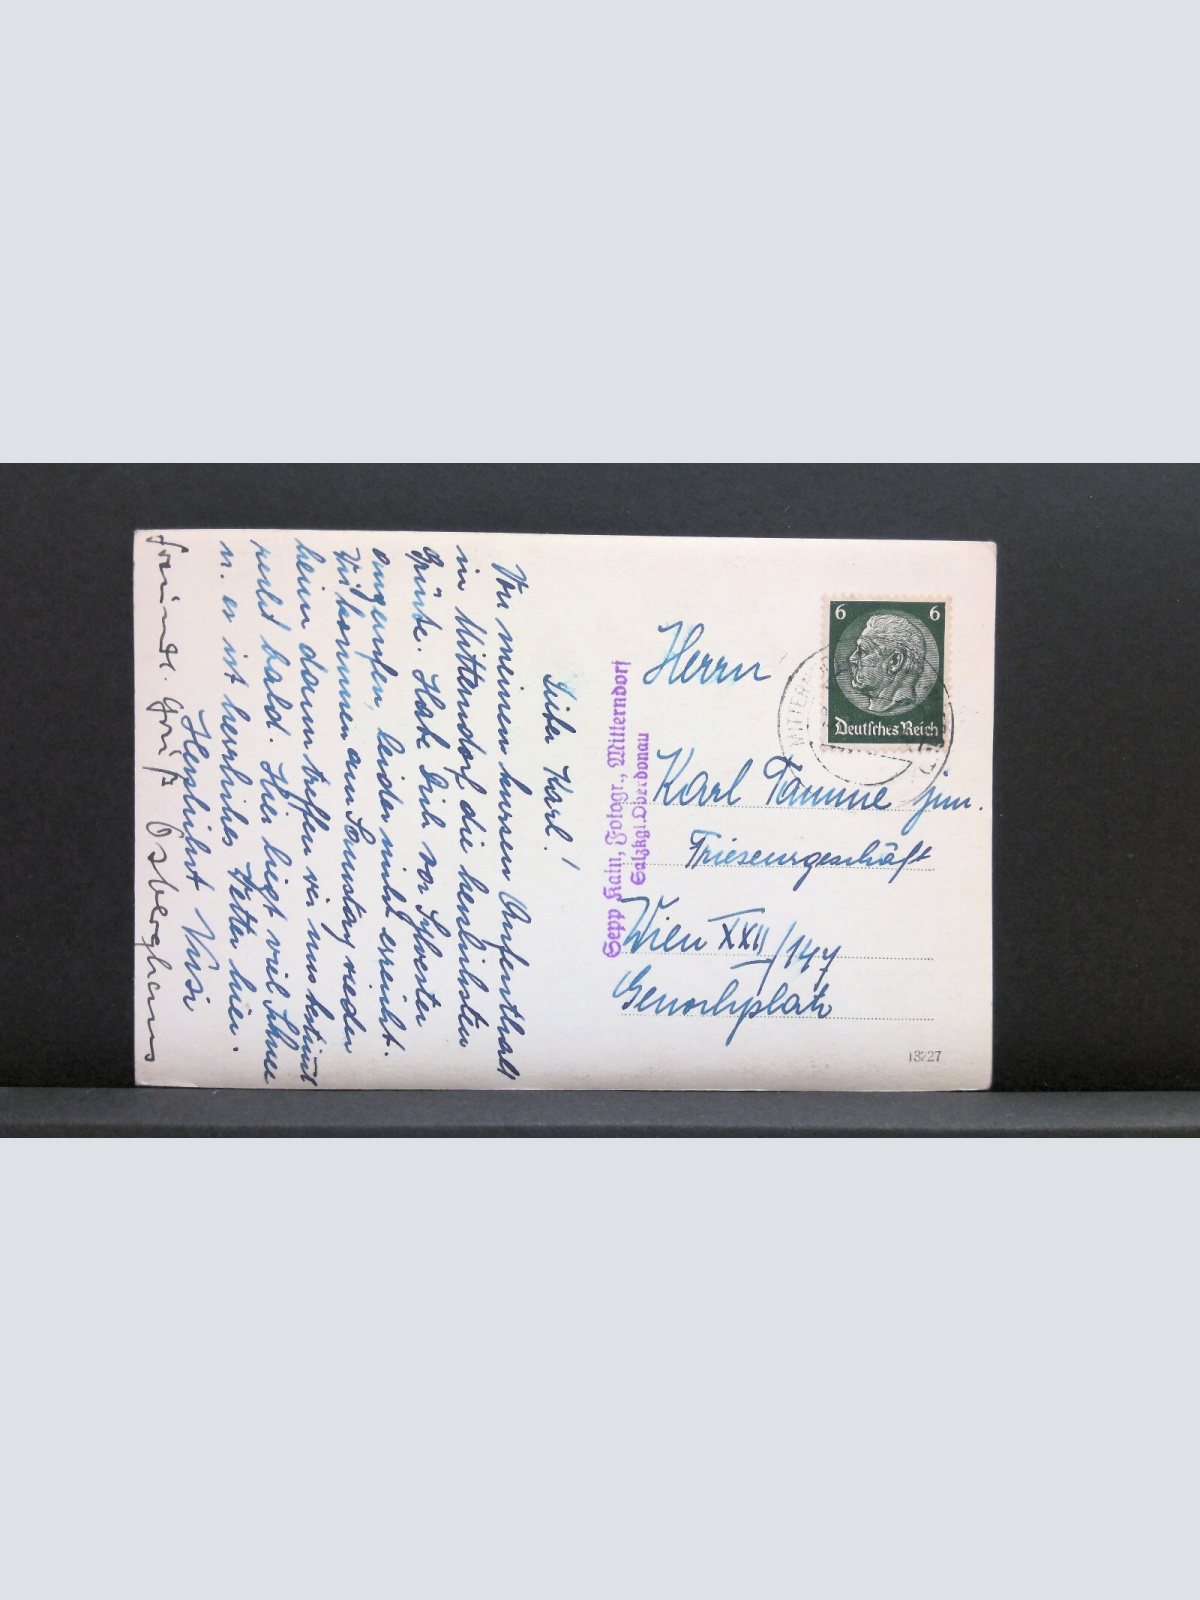 Lieber Karl!
Von meinem kurzen Aufenthalt
in Mitterndorf die herzlichsten
Grüße. Habe Dich vor Sylvester
angerufen, leider nicht erreicht.
Wir kommen am Sonntag wieder
heim dann treffen wir uns bestimt
recht bald. Hier liegt viel Schnee
u. es ist herrliches Wetter hier.
Herzlichst
freundl. Gruß
Sepp Kain, Fotogr., Mitterndorf
Salzkgl. Oberdonau
6 6
Deutsches Reich
MITTERN
Herrn
Karl Tamme jun.
Friseurgeschäft
Wien XXII/147
Genochplatz
13227